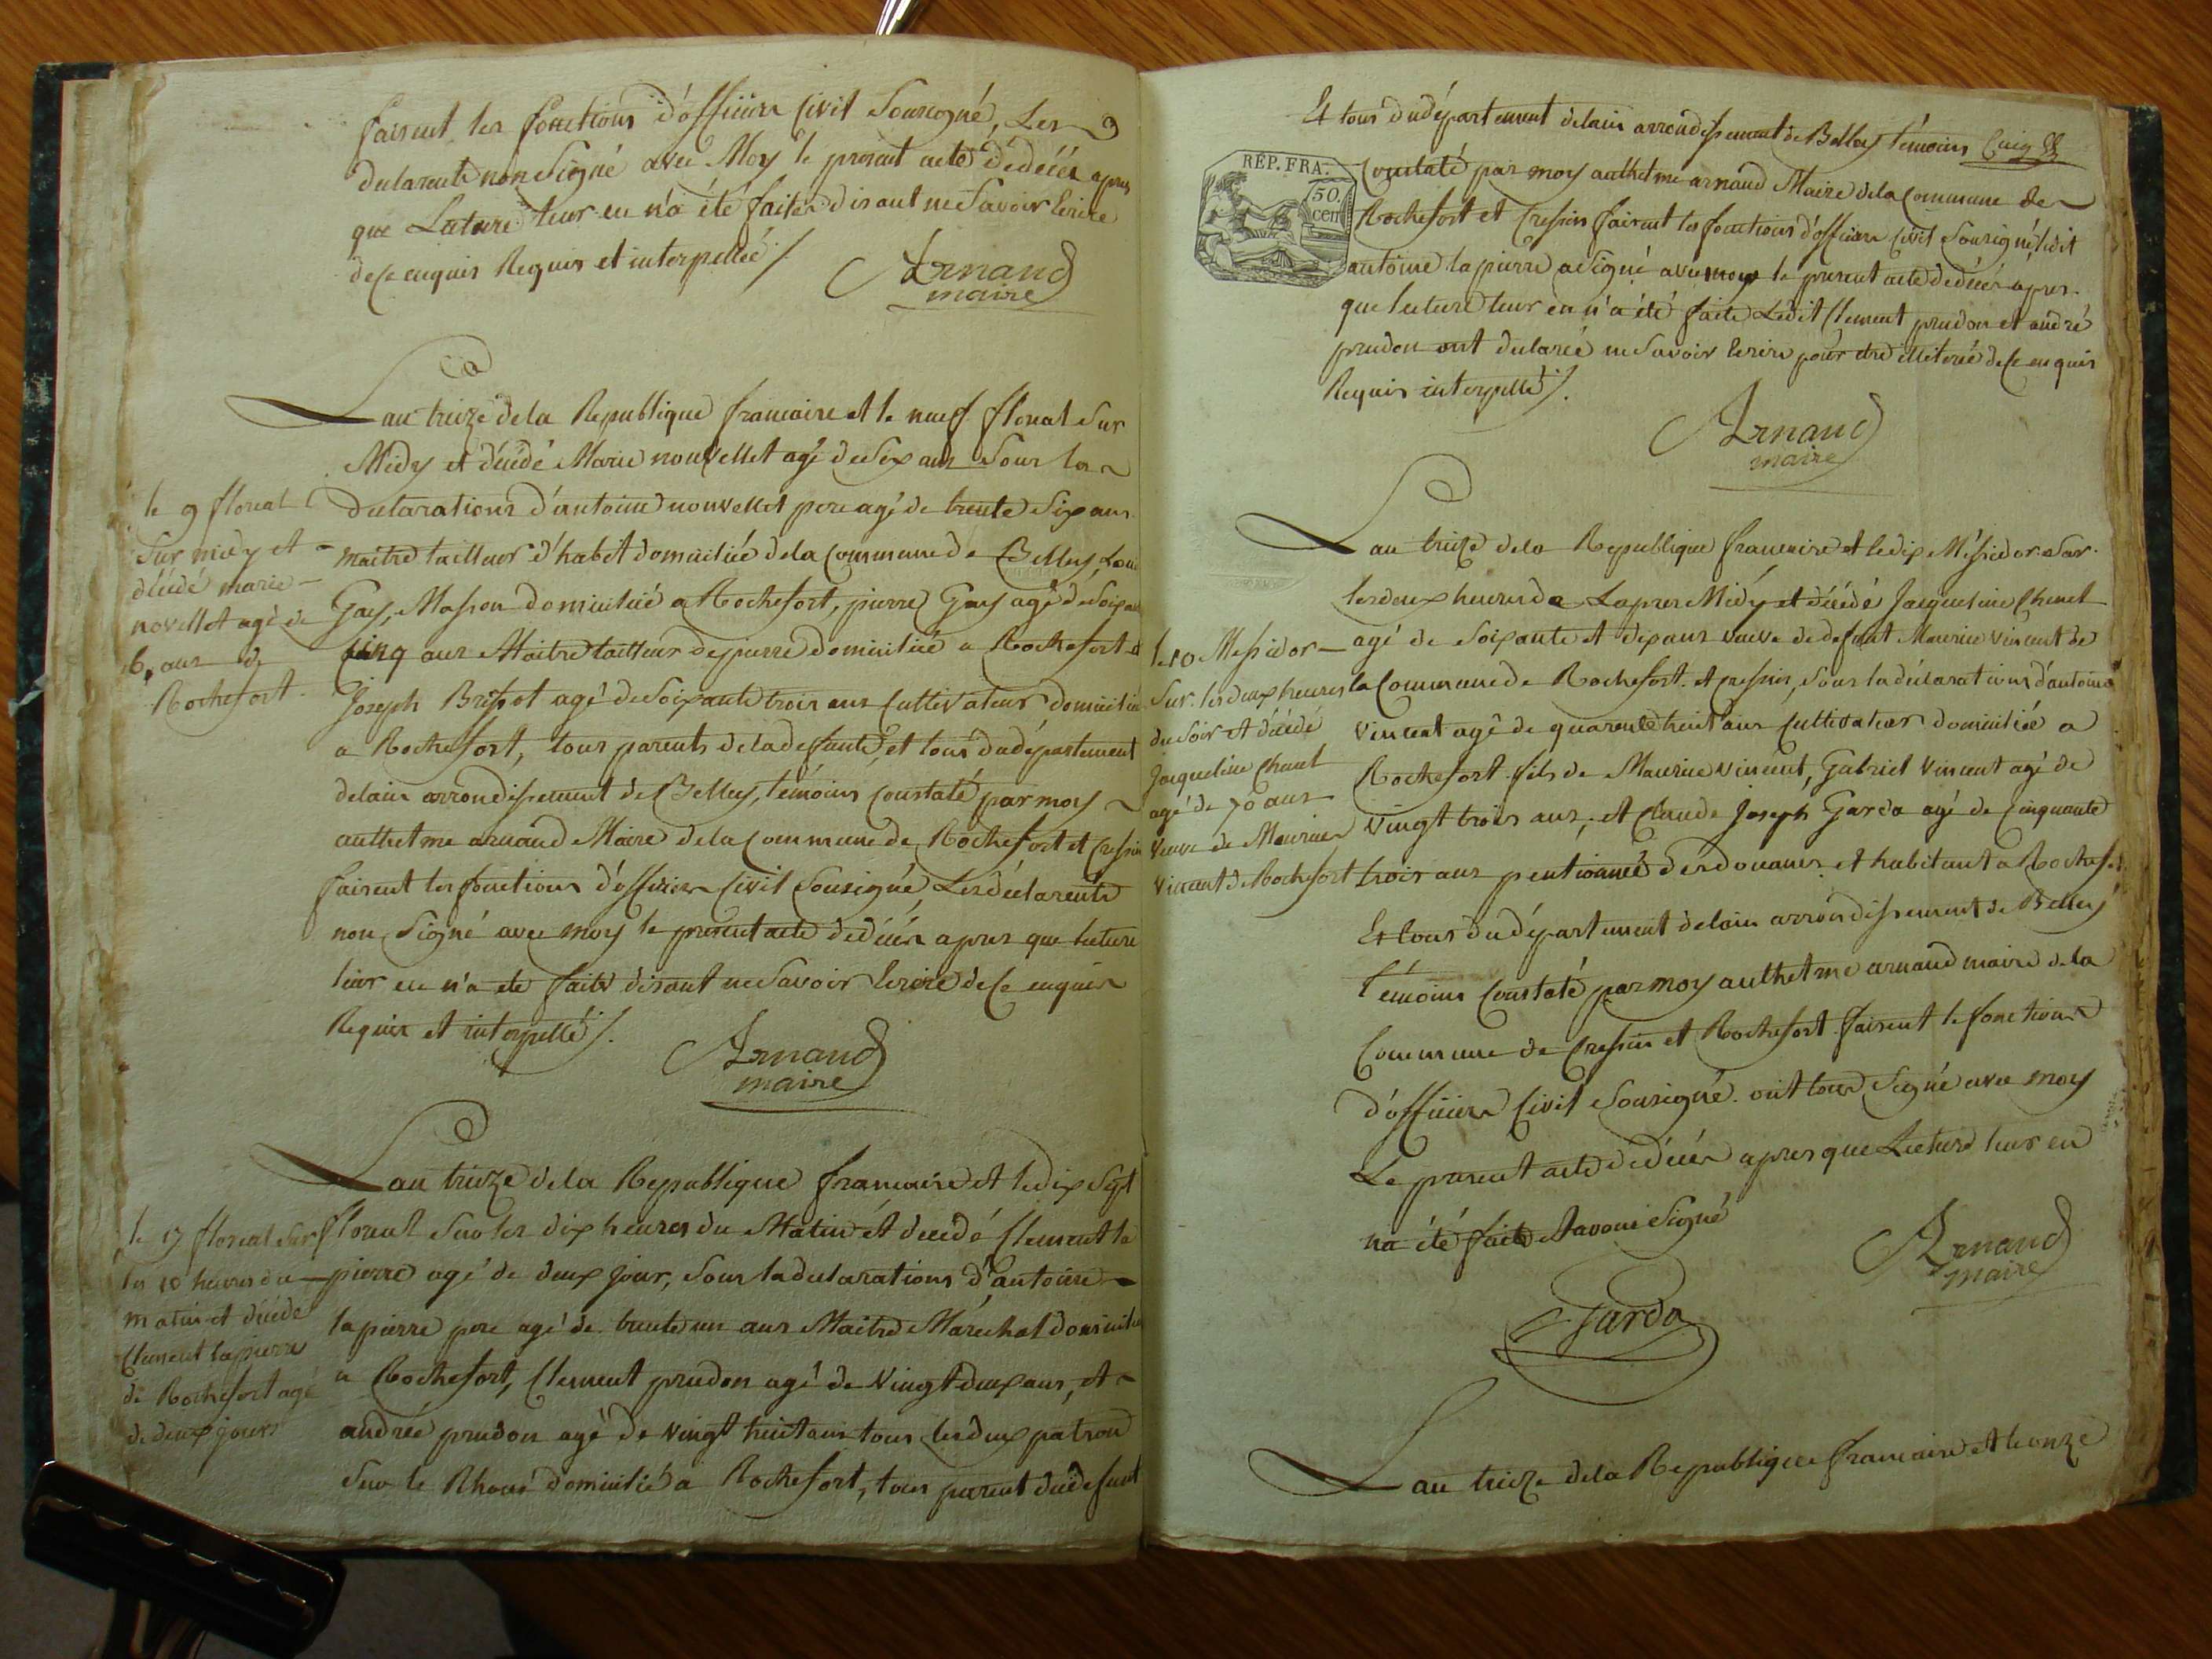 faisent les fonctions d'officier civil Sousigné, Les
declarents non Signé avec Moy le present acte dédécés apres
que Lecture leur en n'a été faites disant ne Savoir Écrire
de ce enquis Requis et interpellée /.
Arnaud
maire
Lan treize de la Republique francaire et le neuf floreal Sur
Midy et décédé Marie nouvellet agé de Six ans Sous la
declarations d'antoine nouvellet pere agé de trente Six ans
maitre tailleur d'habit domiciliée de la Commune de Belley, Loui
Gay, Masson domiciliée a Rochefort, pierre Gay agé de Soixan
Cinq ans Maitre tailleur de pierre domiciliée a Rochefort et
Joseph Brissot agé de Soixante trois ans Cultivateur domicilié
a Rochefort, tous parents de la deffunte, et tous du département
delain arrondissement de Belley, témoins Constaté par moy
authelme arnaud Maire de la Commune de Rochefort et Cressin
faisent les fonctions d'officier Civil Sousigné, Les déclarents
non Signé avec moy le present acte dedécés apres que lecture
leur en n'a été faite disant ne Savoir Ecrire de Ce enquis
Requis et interpellé /.
Arnaud
maire
le 9 floreal
Sur midy et
décédé marie
novellet agé de
6 ans de
Rochefort
Lan treize de la Republique francaire et le dix Sept
floreal Sur les dix heures du Matin et decédé Clement la
pierre agé de deux Jour, Sous la declarations d'antoine
la pierre pere agé de trente un ans Maitre Maréchal domicilié
a Rochefort, Clement prudon agé de Vingt deux ans, et
andrée prudon agé de vingt huit ans tous les deux patron
Sur le Rhone domicilié a Rochefort, tous parent du defunt
le 17 floreal Sur
les 10 heures du
matin et décédé
Clement lapierre
de Rochefort agé
de deux jours
Et tous du département delain arrondissement de Belley témoins
Constaté par moy authelme arnaud Maire de la Commune de
Rochefort et Cressin faisent les fonctions d'officier Civil Sousigné, ledit
antoine la pierre a Signé avec moy le present acte dedécés apres
que lecture leur en n'a été faite Ledit Clement prudon et andré
prudon ont declarée ne Savoir Ecrire pour etre illiterée de Ce enquis
Requis interpellé /.
RÉP. FRA.
50.
cen
Arnaud
maire
Lan treize de la Republique francaire et le dix Messidor Sur
les deux heures de Lapres Midy et décédé Jacqueline Chenet
agé de Soixante et dix ans veuve de defunt Maurice Vincent de
la Commune de Rochefort et Cressin, Sous la déclarations d'antoine
Vincent agé de quarente huit ans Cultivateur domiciliée a
Rochefort fils de Maurice Vincent, Gabriel Vincent agé de
Vingt trois ans, et Claude Joseph Garda agé de Cinquante
trois ans pentionnée des douanes et habitant a Rochefort
Et tous du département delain arrondissement de Belley
témoins Constaté par moy authelme arnaud maire de la
Commune de Cressin et Rochefort faisent le fonctions
d'officier Civil Sousigné. ont tous Signé avec moy
Le present acte dedécés apres que Lecture leur en
na été faite Et avons Signé
le 10 Messidor
Sur les deux heures
du Soir et décédé
Jacqueline Chenet
agé de 70 ans
Veuve de Maurice
Vincent de Rochefort
Arnaud
maire
Garda
Lan treize de la Republique francaire et le onze